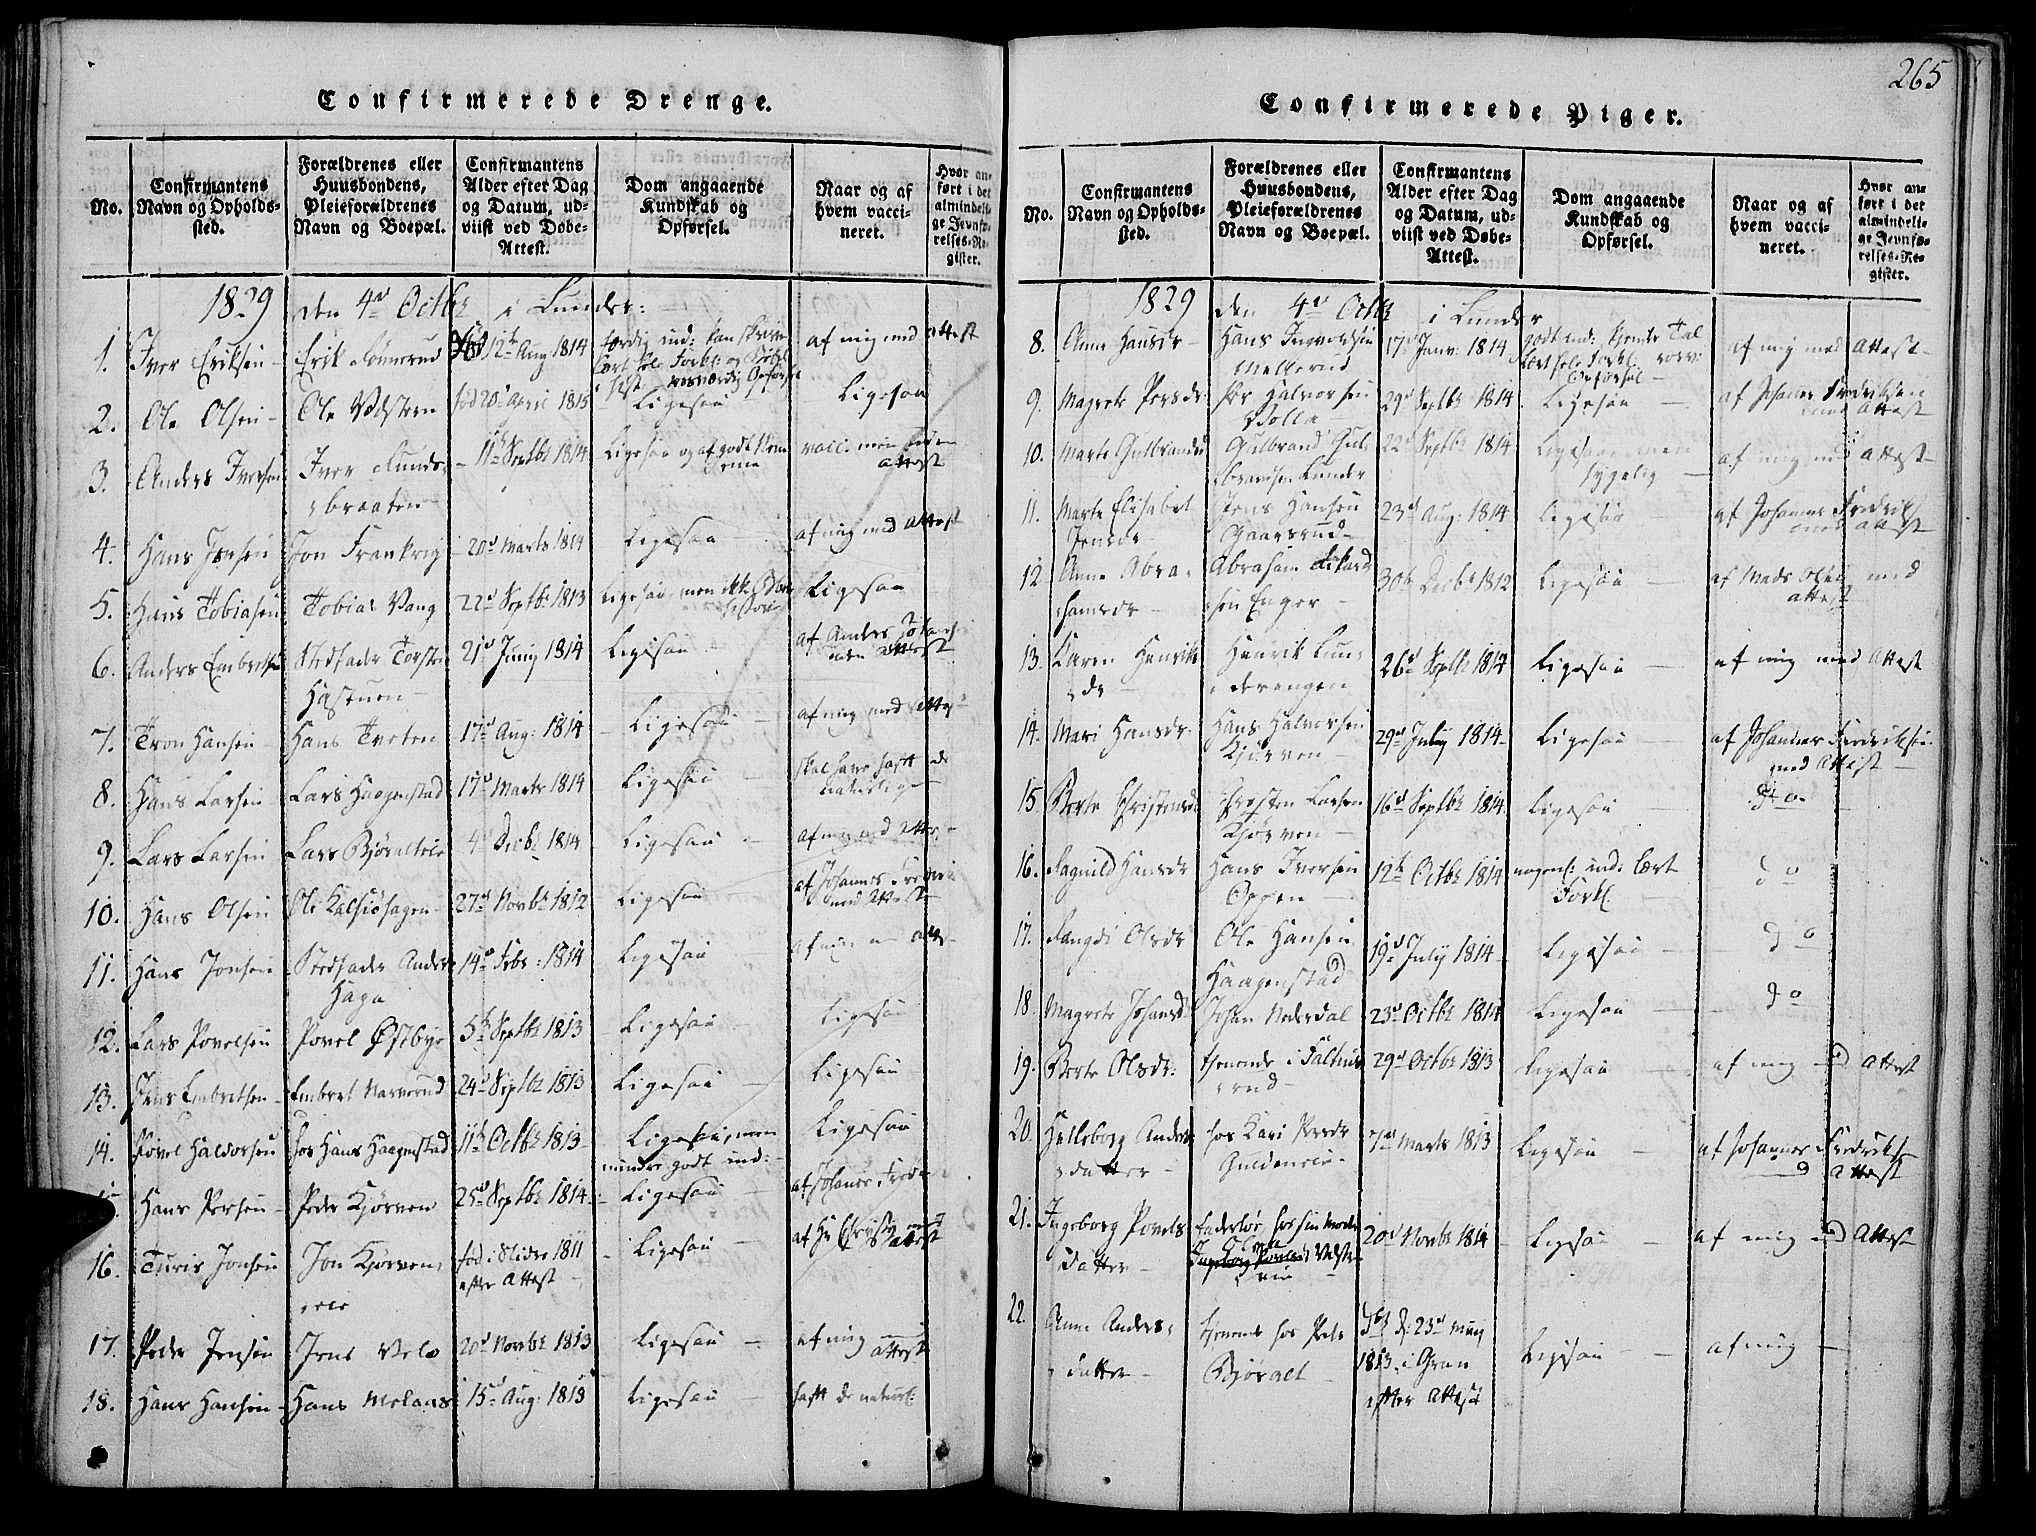 265
Confirmerede Drenge.
No.
Confirmantens Navn og Opholds-sted.
Forældrenes eller Huusbondens, Pleieforældrenes Navn og Boepæl.
Confirmantens Alder efter Dag og Datum, ud-viist ved Døbe-Attest.
Dom angaaende Kundskab og Opførsel.
Naar og af hvem vacci-neret.
Hvor an-ført i det almindeli-ge Jevnfø-relses-Re-gister.
1829 den 4d Octbr i Lunder:
1. Iver Eriksen - Erik 12te Aug 1814 færdig ind: af mig med attest
2. Ole Olsen - Ole fød 20d April 1815 Ligesaa Ligesaa
3. Anders Iversen Iver braaten - 11te Septbr 1814 Ligesaa og af godt attest
4. Hans Jonsen Jon Frankrig 20d Marts 1814 Ligesaa af mig med attest
5. Hans Tobiasen Tobias Vang 22d Septbr 1813 Ligesaa men ikke Ligesaa
6. Anders Embretsen Stedfader Torsten Hastuen 21d Juny 1814 Ligesaa af Anders attest
7. Tron Hansen Hans Tveten 17d Aug: 1814 Ligesaa af mig med attest
8. Hans Larsen Lars Haagenstad 17d Marts 1814 Ligesaa skal have haft de naturlige
9. Lars Larsen Lars 4d Decbr 1814 Ligesaa af mig med attest
10. Hans Olsen Ole 27d Novbr 1812 Ligesaa af Johannes med Attest
11. Hans Jonsen Stedfader Anders Haga 14d Febr: 1814 Ligesaa af mig
12. Lars Povelsen Povel Østbye 5te Septbr 1813 Ligesaa Ligesaa
13. Jens Embretsen Embret 24d Septbr 1813 Ligesaa Ligesaa
14. Povel Haldorsen hos Hans Haagenstad 11te Octbr 1813 Ligesaa, men mindre godt ind: Ligesaa
Hans Persen - Peder Kjørven 25d Septbr 1814 Ligesaa af Johannes
16. Turis Jonsen Jon Kjørven fød i Slidre 1811 efter Attest Ligesaa
17. Peder Jensen Jens Velo 20d Novbr 1813 Ligesaa af mig attest
18. Hans Hansen - Hans Melaas 15d Aug: 1813 Ligesaa haft de naturl:
Confirmerede Piger.
No.
Confirmantens Navn og Opholds-sted.
Forældrenes eller Huusbondens, Pleieforældrenes Navn og Boepæl.
Confirmantens Alder efter Dag og Datum, ud-viist ved Døbe-Attest.
Dom angaaende Kundskab og Opførsel.
Naar og af hvem vacci-neret.
Hvor an-ført i det almindeli-ge Jevnfø-relses-Re-gister.
1829 den 4d Octbr i Lunder
8. Anne Hansdr Hans 17d Janv: 1814 godt ind: af mig med Attest
9. Magrete Persdr Per Halvorsen 29d Septbr 1814 Ligesaa af Johanes Fredriksen attest
10. Marte Gulbrandsd Gulbrand Gulbrandsen Lunder 22d Septbr 1814 Ligesaa men sygelig af mig med Attest
11. Marte Elisabet Jensdr Jens Hansen Gaarsrud 23d Aug: 1814 Ligesaa af Johannes Fredrik
12. Anne Abrahamsdr Abraham Enger 30te Decbr 1812 Ligesaa af Mads Olsen med attest
13. Karen Henriksdr Henrik Lunderengen 26d Septbr 1814 Ligesaa af mig med Attest
14. Mari Hansdr. Hans Halvorsen Kjørven 29d July 1814 Ligesaa af Johannes Fredriksen med Attest
15. Berte Christensd Christen Larsen Kjørven 16d Septbr 1814 Ligesaa do
16. Ragnild Hansdr Hans Iversen Oppen 12te Octbr 1814 nogenl: ind: lært Forkl. do
17. Rangdi Olsdr Ole Hansen Haagenstad 19d July 1814 Ligesaa do
18. Magrete Johansd Johan Nederdal 23d Octbr 1814 Ligesaa do
19. Berte Olsdr: tjenende i 29d Octbr 1813 Ligesaa af mig med Attest
20. Helleborg Anders datter hos Kari Persdr 7d Marts 1813 Ligesaa af Johannes Fredriks Attest
21. Ingeborg Povels datter Faderløs, hos sin Moder 20d Novbr 1814 Ligesaa af mig med Attest
22. Anne Anders datter tjenende hos Peder Bjøralt 23d May 1813 i Gran efter Attest Ligesaa af mig